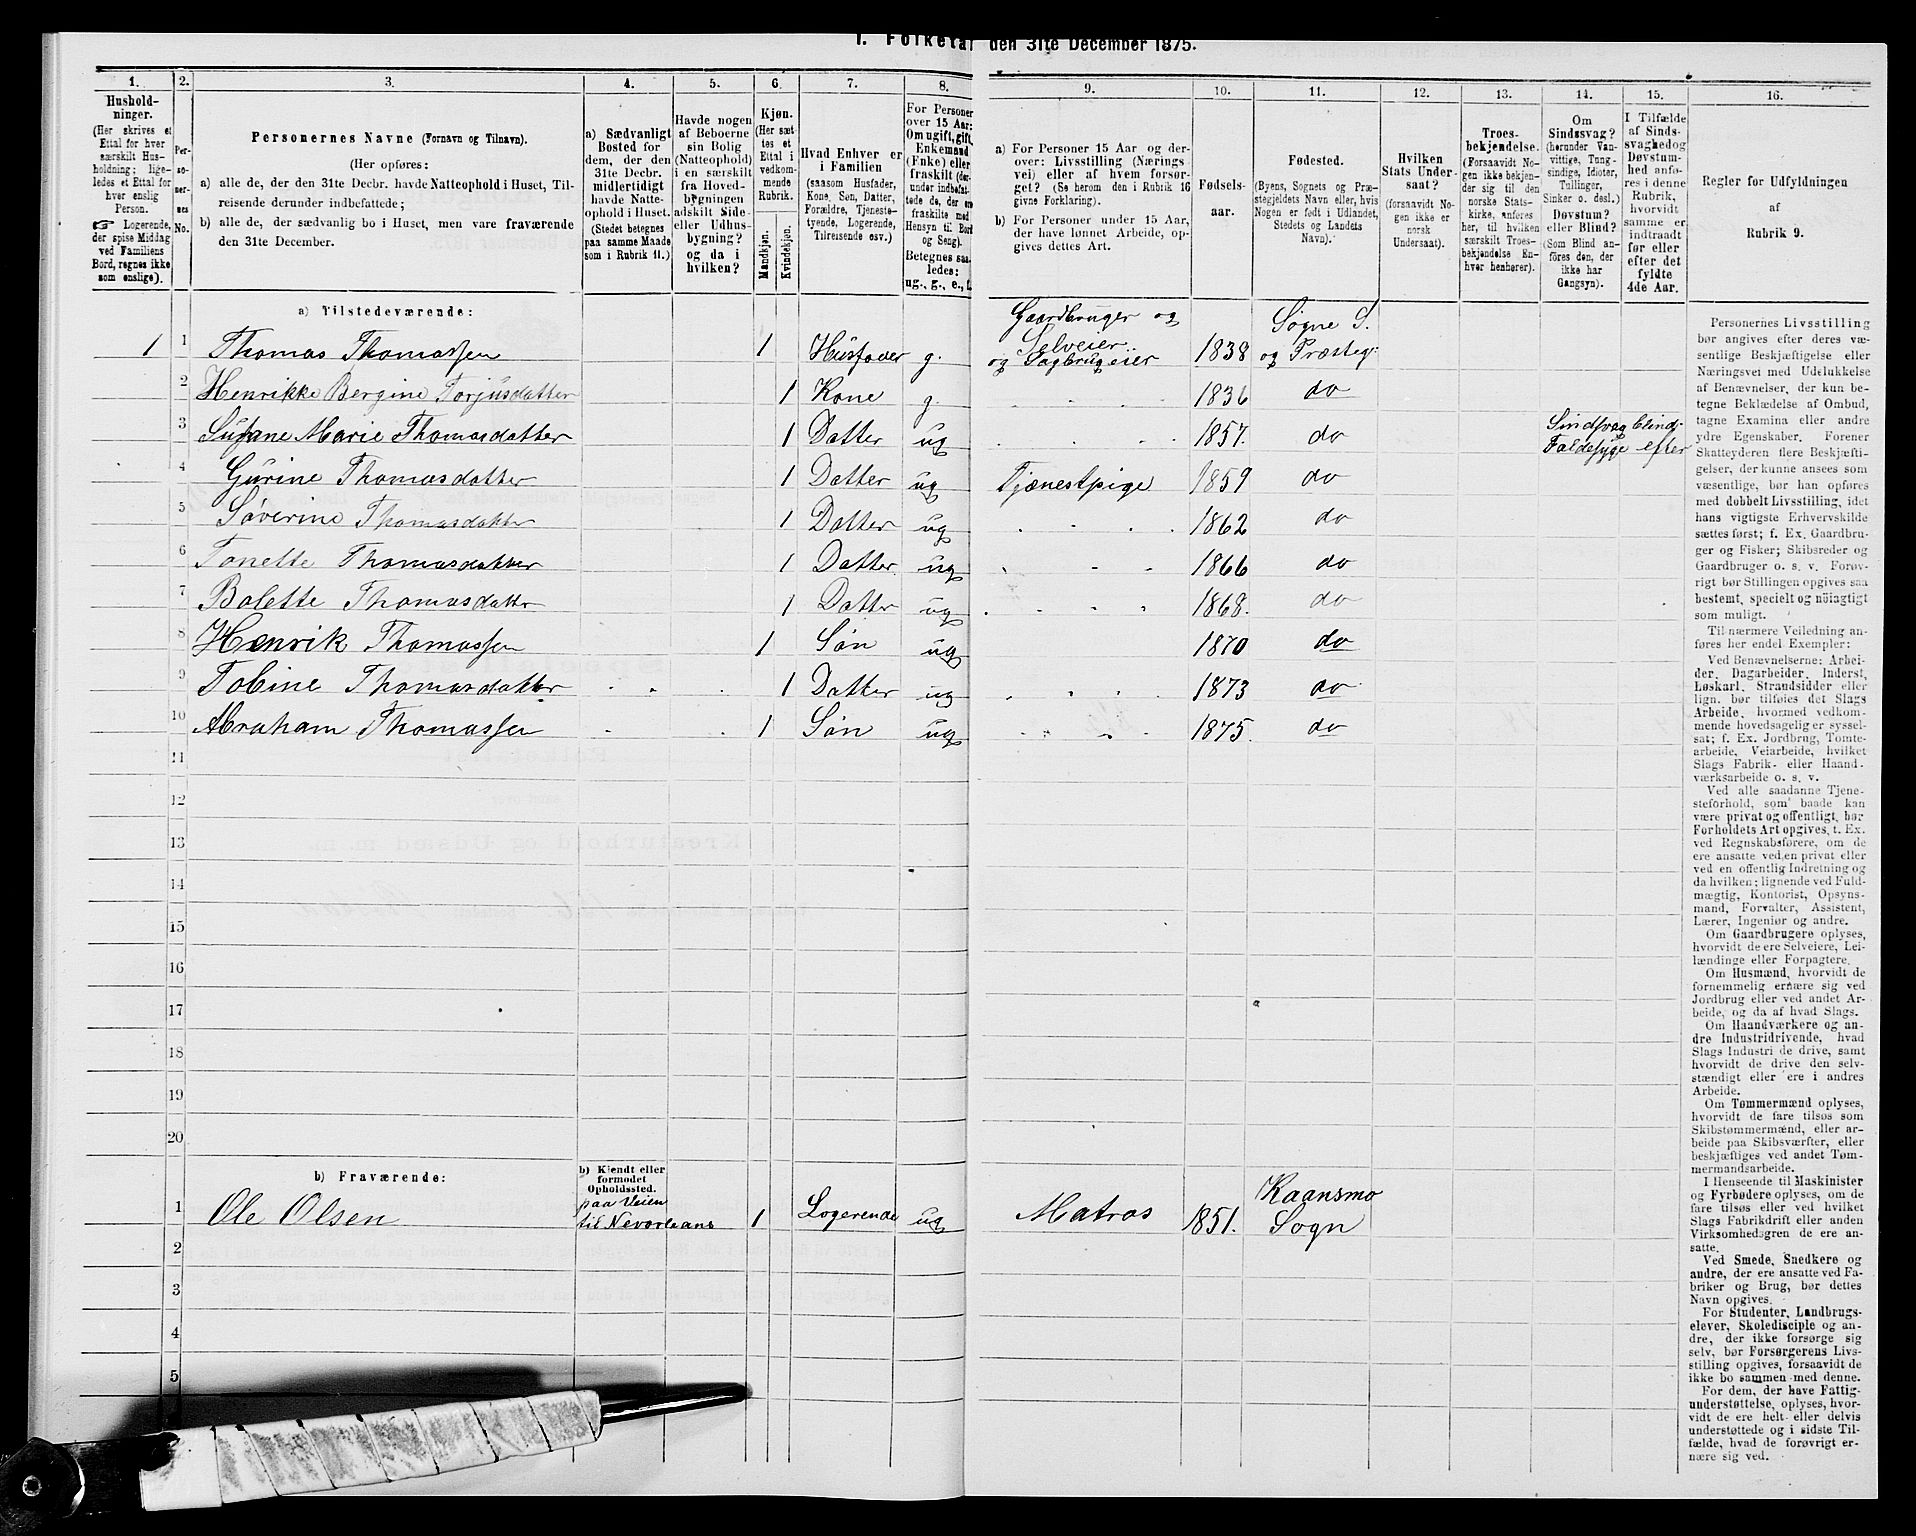 I. Folketal den 31te December 1875.
1. 2. 3. 4. 5. 6. 7. 8. 9. 10. 11. 12. 13. 14. 15. 16.
Hushold-
ninger.
(Her skrives et
Ettal for hver
særskilt Hus-
holdning; lige-
ledes et Ettal for
hver enslig
Person.
☞ Logerende,
der spise Middag
ved Familiens
Bord, regnes ikke
som enslige).
Per-
soner-
nes
No.
Personernes Navne (Fornavn og Tilnavn).
(Her opføres:
a) alle de, der den 31te Decbr. havde Natteophold i Huset, Til-
reisende derunder indbefattede;
b) alle de, der sædvanlig bo i Huset, men vare fraværende
den 31te December.
a) Sædvanligt
Bosted for
dem, der den
31te Decbr.
midlertidigt
havde Natte-
ophold i Huset.
(Stedet betegnes
paa samme Maade
som i Rubrik 11.)
Havde nogen
af Beboerne
sin Bolig
(Natteophold)
i en særskilt
fra Hoved-
bygningen
adskilt Side-
eller Udhus-
bygning?
og da i
hvilken?
Kjøn.
(Her sæt-
tes et
Ettal i
vedkom-
mende
Rubrik.
Mandkjøn.
Kvindekjøn.
Hvad Enhver er
i Familien
(saasom Husfader,
Kone, Søn, Datter,
Forældre, Tjeneste-
tyende, Logerende,
Tilreisende osv.)
For Personer
over 15 Aar:
Om ugift, gift,
Enkemand
(Enke) eller
fraskilt (der-
under indbefat-
tede de, der ere
fraskilte med
Hensyn til Bord
og Seng).
Betegnes saa-
ledes:
ug., g., e., f.
a) For Personer 15 Aar og der-
over: Livsstilling (Nærings-
vei) eller af hvem forsør-
get? (Se herom den i Rubrik 16
givne Forklaring).
b) For Personer under 15 Aar,
der have lønnet Arbeide, op-
gives dettes Art.
Fødsels-
aar.
Fødested.
(Byens, Sognets og Præ-
stegjeldets Navn eller, hvis
Nogen er født i Udlandet,
Stedets og Landets
Navn).
Hvilken
Stats Under-
saat?
(forsaavidt No-
gen ikke er
norsk
Undersaat).
Troes-
bekjendelse.
(Forsaavidt No-
gen ikke bekjen-
der sig til den
norske Stats-
kirke, anføres
her, til hvilken
særskilt Troes-
bekjendelse En-
hver henhører).
Om
Sindssvag?
(herunder Van-
vittige, Tung-
sindige, Idioter,
Tullinger,
Sinker o. desl.)
Døvstum?
eller Blind?
(Som Blind an-
føres den, der
ikke har
Gangsyn).
I Tilfælde
af Sinds-
svaghed og
Døvstum-
hed anfø-
res i denne
Rubrik,
hvorvidt
samme er
indtraadt
før eller
efter det
fyldte
4de Aar.
Regler for Udfyldningen
af
Rubrik 9.
a) Tilstedeværende:
1 1 Thomas Thomassen 1 Husfader g. Gaardbruger og Selveier og Sagbrugeier 1838 Søgne S. og Præsteg:
2 Henrikke Bergine Torjusdatter 1 Kone g. 1836 do
3 Susane Marie Thomasdatter 1 Datter ug 1857. do Sindsvag blind, Faldesyge efter
4 Gurine Thomasdatter 1 Datter ug Tjænestpige 1859 do
5 Søverine Thomasdatter 1 Datter ug 1862 do
6 Tonette Thomasdatter 1 Datter ug 1866 do
7 Bolette Thomasdatter 1 Datter ug 1868. do
8 Henrik Thomassen 1 Søn ug 1870 do
9 Tobine Thomasdatter 1 Datter ug 1873 do
10 Abraham Thomassen 1 Søn ug 1875. do
11
12
13
14
15
16
17
18
19
20
b) Fraværende:
b) Kjendt eller
formodet
Opholdssted.
1 Ole Olsen paa Veien til Nevorleans 1 Logerende ug Matros 1851. Kaansmo Sogn
2
3
4
5
Personernes Livsstilling
bør angives efter deres væ-
sentlige Beskjæftigelse eller
Næringsvei med Udelukkelse
af Benævnelser, der kun be-
tegne Beklædelse af Ombud,
tagne Examina eller andre
ydre Egenskaber. Forener
Skatteyderen flere Beskjæfti-
gelser, der kunne ansees som
væsentlige, bør han opføres
med dobbelt Livsstilling, idet
hans vigtigste Erhvervskilde
sættes først; f. Ex. Gaardbru-
ger og Fisker; Skibsreder og
Gaardbruger o. s. v. Forøv-
rigt bør Stillingen opgives saa
bestemt, specielt og nöiagtigt
som muligt.
Til nærmere Veiledning an-
føres her endel Exempler:
Ved Benævnelserne: Arbei-
der, Dagarbeider, Inderst,
Løskarl, Strandsidder eller
lign. bør tilføies det Slags
Arbeide, hvormed vedkom-
mende hovedsagelig er syssel-
sat; f. Ex. Jordbrug, Tomte-
arbeide, Veiarbeide, hvilket
Slags Fabrik- eller Haand-
værksarbeide o. s. v.
Ved alle saadanne Tjene-
steforhold, som baade kan
være privat og offentligt, bør
Forholdets Art opgives, t. Ex.
ved Regnskabsførere, om de
ere ansatte ved en privat eller
ved en offentlig Indretning og
da hvilken; lignende ved Fuld-
mægtig, Kontorist, Opsyns-
mand, Forvalter, Assistent,
Lærer, Ingeniør og andre.
Om Gaardbrugere oplyses,
hvorvidt de ere Selveiere, Lei-
lændinge eller Forpagtere.
Om Husmænd, hvorvidt de
fornemmelig ernære sig ved
Jordbrug eller ved andet Ar-
beide, og da af hvad Slags.
Om Haandværkere og an-
dre Industridrivende, hvad
Slags Industri de drive, samt
hvorvidt de drive den selv-
stændigt eller ere i andres
Arbeide.
Om Tømmermænd oplyses,
hvorvidt de fare tilsøs som
Skibstømmermænd, eller ar-
beide paa Skibsværfter, eller
beskjæftiges ved andet Tøm-
mermandsarbeide.
I Henseende til Maskinister
og Fyrbødere oplyses, om de
fare tilsøs eller ved hvilket
Slags Fabrikdrift eller anden
Virksomhedsgren de ere an-
satte.
Ved Smede, Snedkere og
andre, der ere ansatte ved Fa-
briker og Brug, bør dettes
Navn opgives.
For Studenter, Landbrugs-
elever, Skoledisciple og an-
dre, der ikke forsørge sig
selv, bør Forsørgerens Livs-
stilling opgives, forsaavidt de
ikke bo sammen med denne.
For dem, der have Fattig-
understøttelse, oplyses, hvor-
vidt de ere helt eller delvis
understøttede og i sidste Til-
fælde, hvad de forøvrigt er-
nære sig ved.